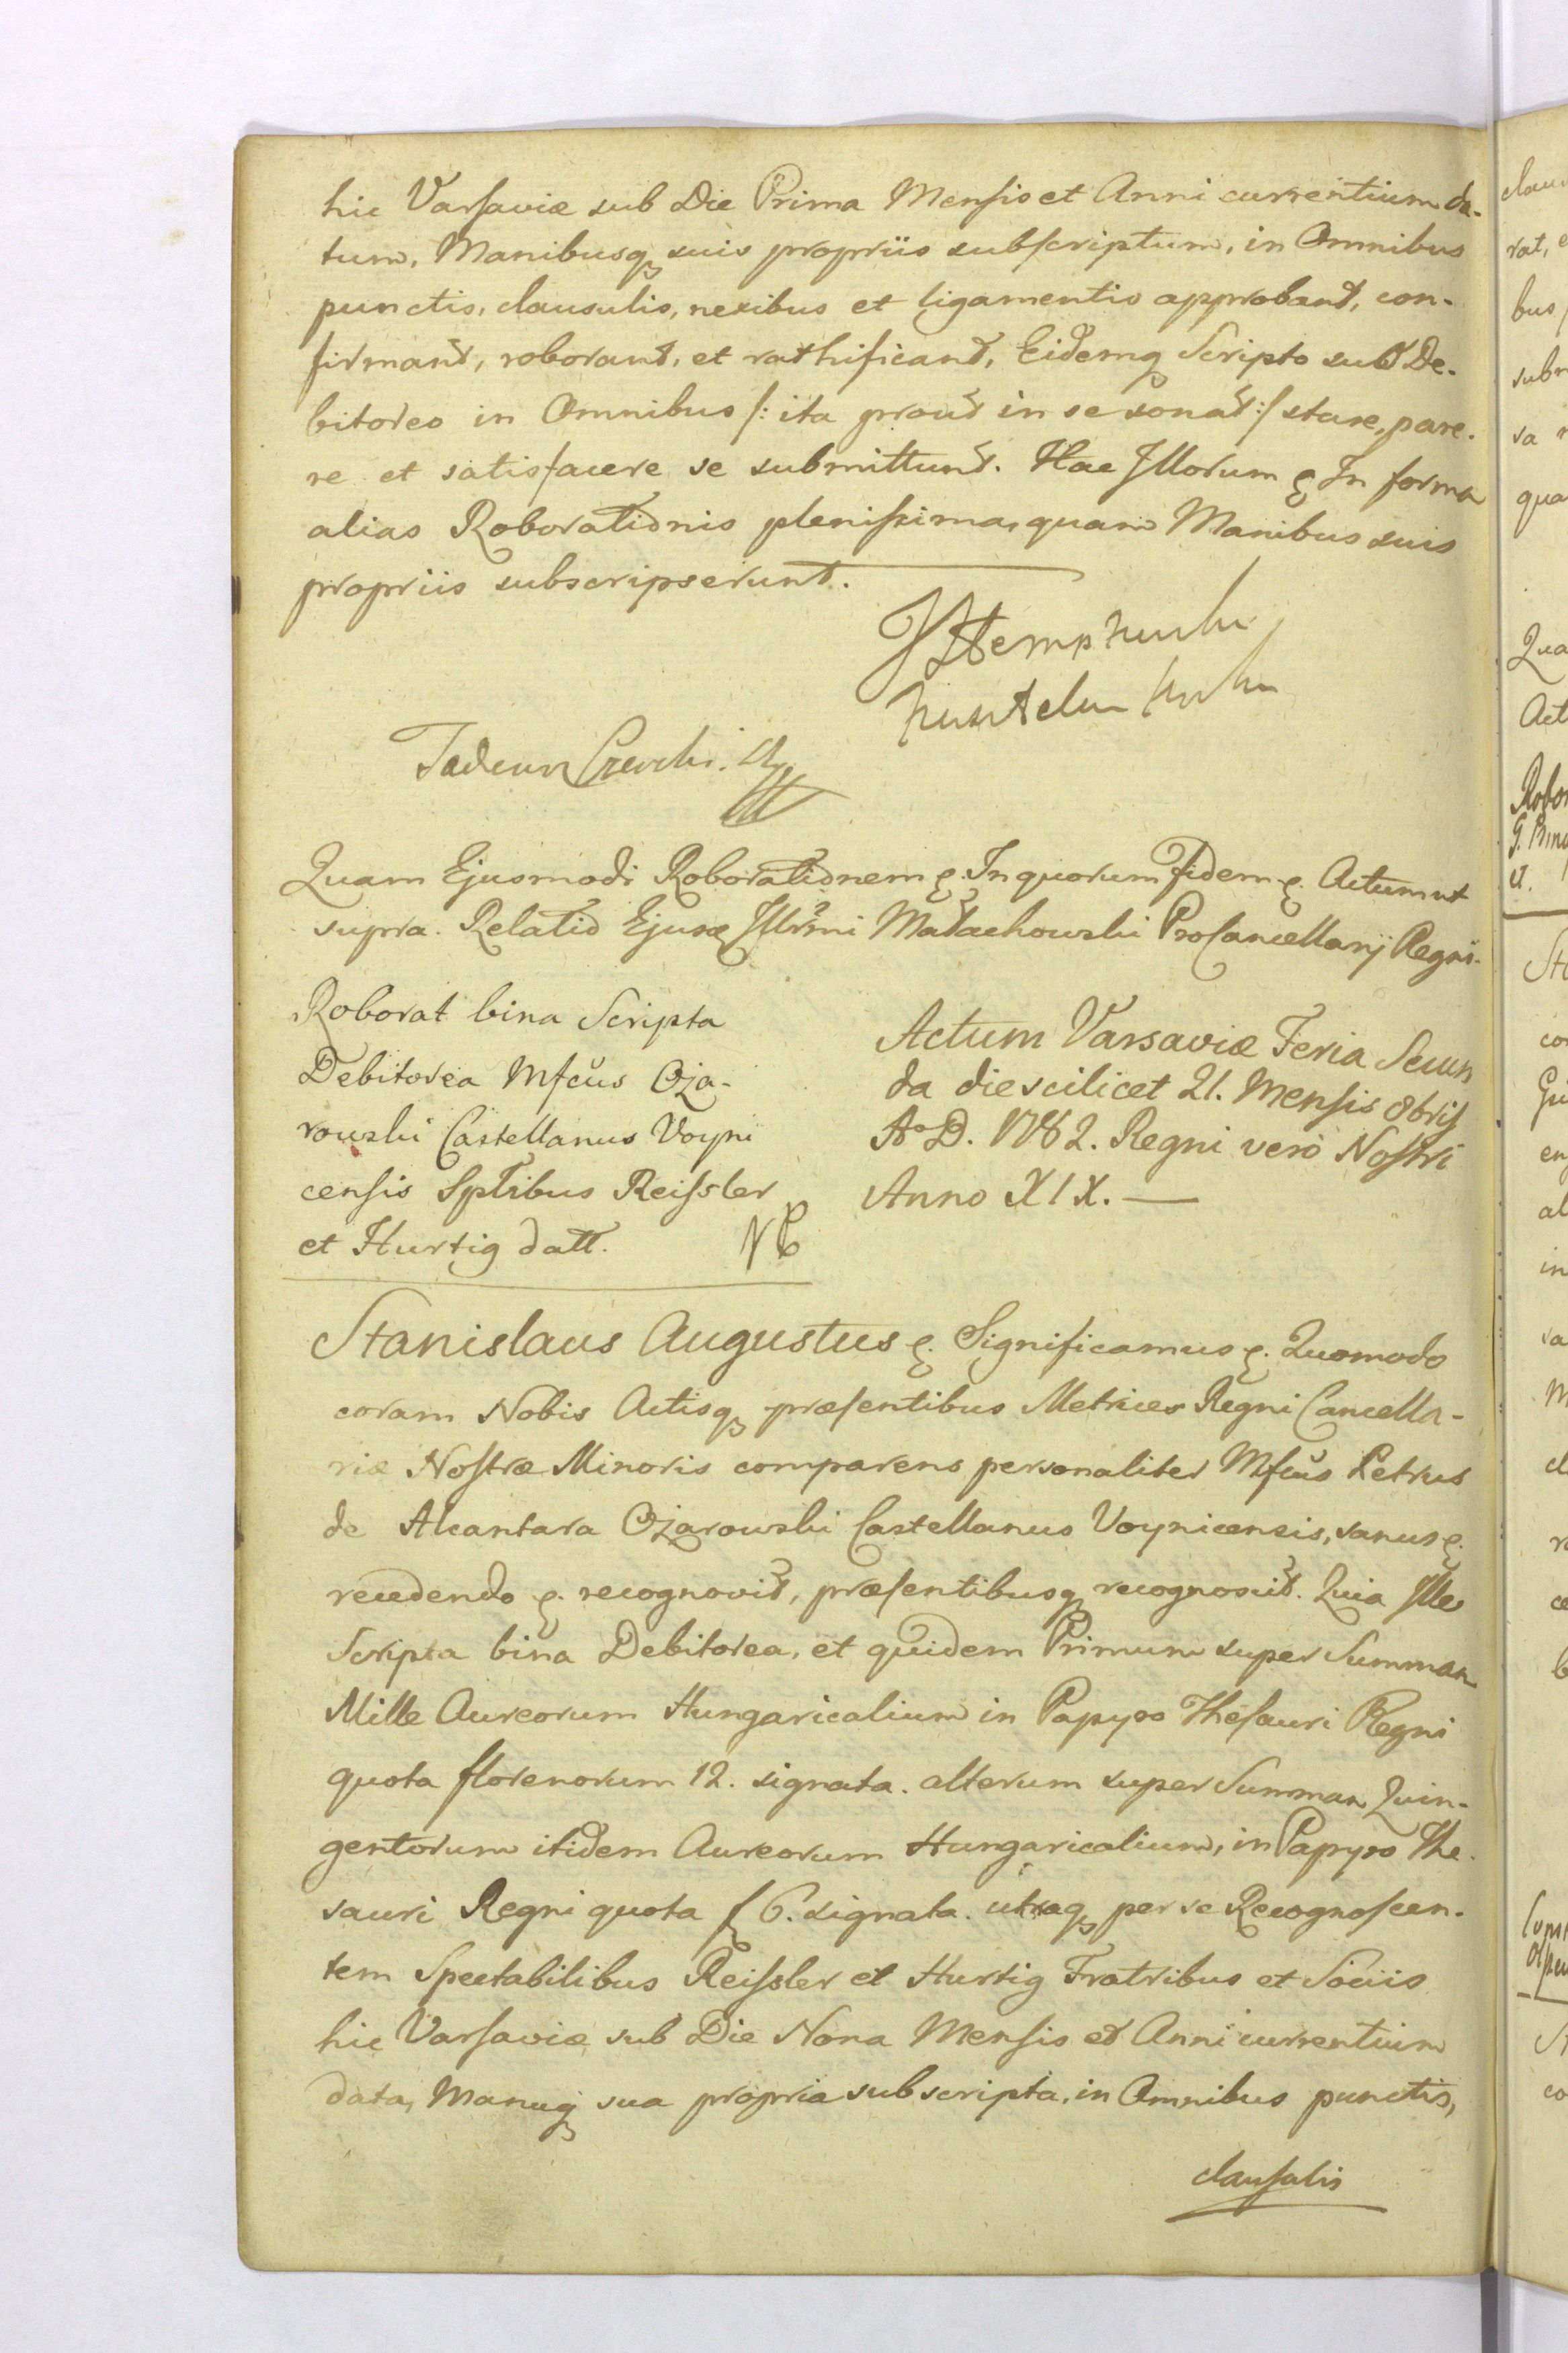 hic Varsaviæ sub Die Prima Mensis et Anni currentium da-
tum, Manibusq suis propriis subscriptum, in Omnibus
punctis, clausulis, nexibus et ligamentis approbant, con-
firmant, roborant, et rathificant, Eidemq Scripto sub De-
bitoreo in Omnibus /: ita prout in se sonat :/ stare, pare-
re et satisfacere se submittunt. Hac Illorum &. In forma
alias Roborationis plenissima, quam Manibus suis
propriis subscripserunt.
Tadeusz
Quam Ejusmodi Roborationem &. In quorum Fidem &. Actum ut
supra. Relatio Ejusd Illrmi Małachowski ProCancellarij Regni.
Roborat bina Scripta
Debitorea Mfcus Oża-
rowski Castellanus Voyni
censis Sptlibus Reissler
et Hurtig datt.
Actum Varsaviæ Feria Secun
da die scilicet 21. Mensis 8bris
Ao D. 1782. Regni vero Nostri
Anno XIX.
Stanislaus Augustus &. Significamus &. Quomodo
coram Nobis Actisq præsentibus Metrices Regni Cancella-
riæ Nostræ Minoris comparens personaliter Mfcus Petrus
de Alcantara Ożarowski Castellanus Voynicensis, sanus &.
recedendo &. recognovit, præsentibusq recognoscit. Quia Ille
Scripta bina Debitorea, et quidem Primum super Summam
Mille Aureorum Hungaricalium in Papyro Thesauri Regni
quota florenorum 12. signata. alterum super Summam Quin-
gentorum itidem Aureorum Hungaricalium, in Papyro The-
sauri Regni quota f 6. signata. utraq per se Recognoscen-
tem Spectabilibus Reissler et Hurtig Fratribus et Sociis
hic Varsaviæ sub Die Nona Mensis et Anni currentium
data, Manuq sua propria subscripta, in Omnibus punctis,
clausulis